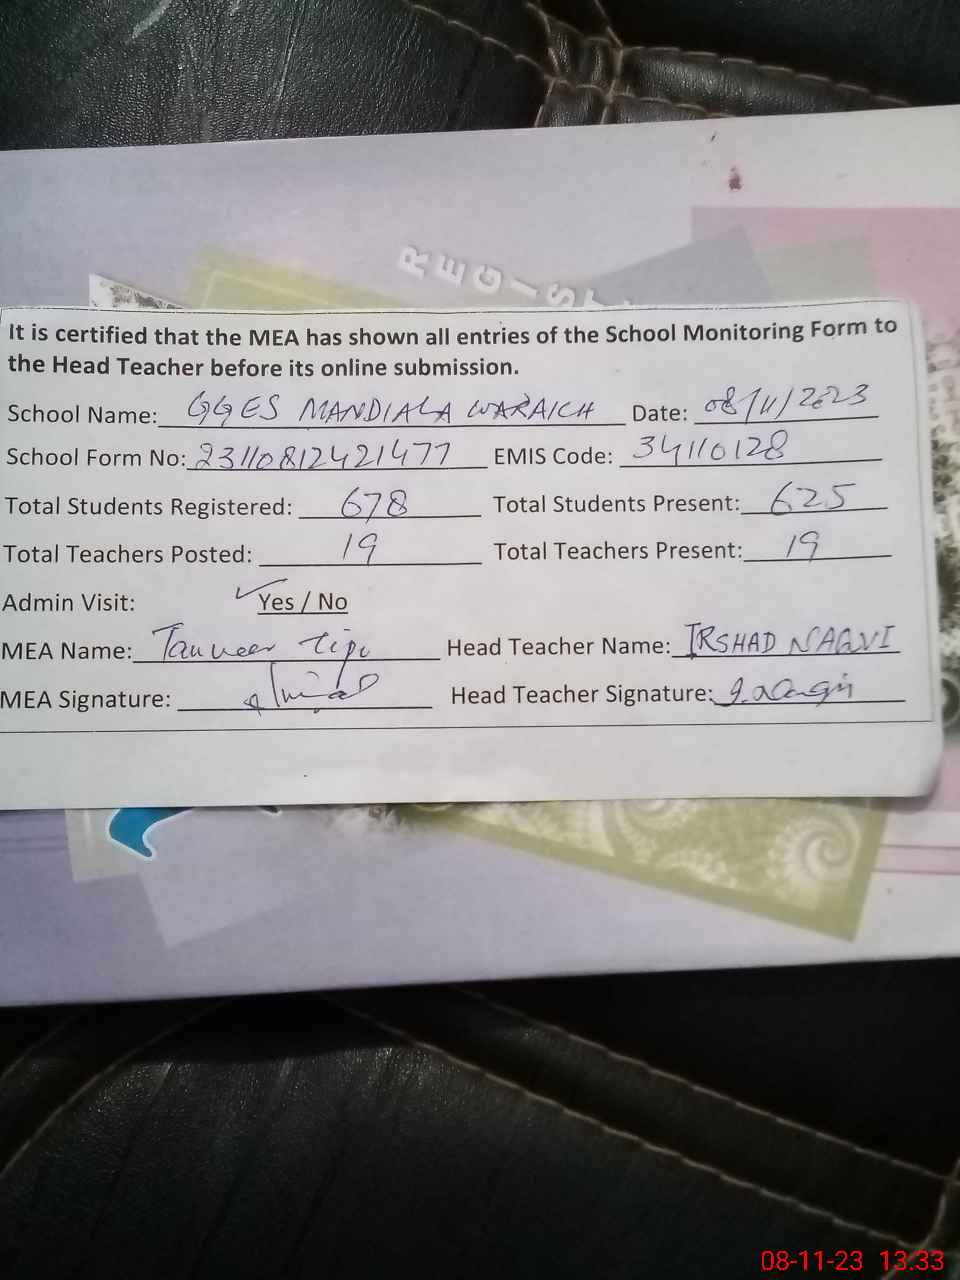 REGIST
It is certified that the MEA has shown all entries of the School Monitoring Form to
the Head Teacher before its online submission.
School Name: GGES MANDIALA WARAICH Date: 08/11/2023
School Form No: 23110812421477 EMIS Code: 34110128
Total Students Registered: 678 Total Students Present: 625
Total Teachers Posted: 19 Total Teachers Present: 19
Admin Visit: ✓ Yes / No
MEA Name: Tanveer Tipu Head Teacher Name: IRSHAD NAQVI
MEA Signature: Head Teacher Signature:
08-11-23 13.33